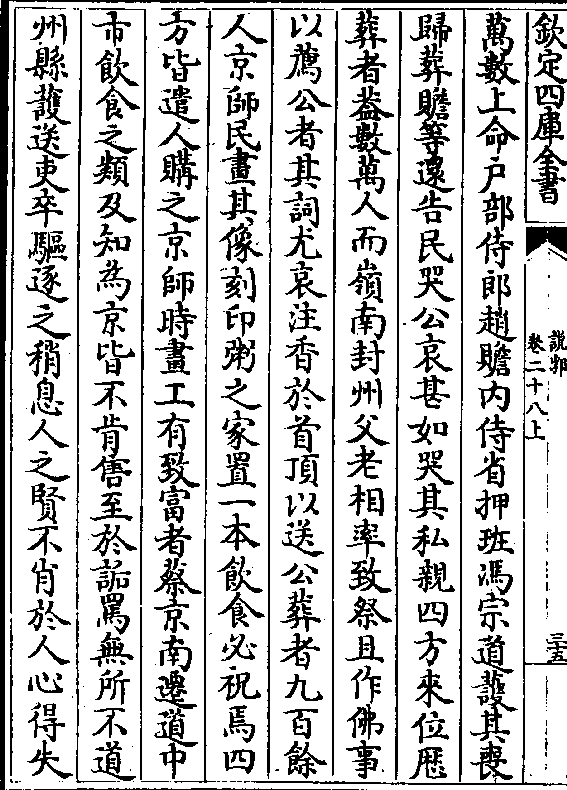 欽定四庫全書
說郛
卷二十八上
三十五
萬數上命户部侍郎趙瞻内侍省押班馮宗道䕶其喪
歸葬瞻等還告民哭公哀甚如哭其私親四方來位厯
葬者葢數萬人而嶺南封州父老相率致祭且作佛事
以薦公者其詞尤哀注香於首頂以送公葬者九百餘
人京師民畫其像刻印粥之家置一本飲食必祝焉四
方皆遣人購之京師時畫工有致富者蔡京南遷道中
市飲食之類及知為京皆不肯售至於詬罵無所不道
州縣䕶送吏卒驅逐之稍息人之賢不肖於人心得失